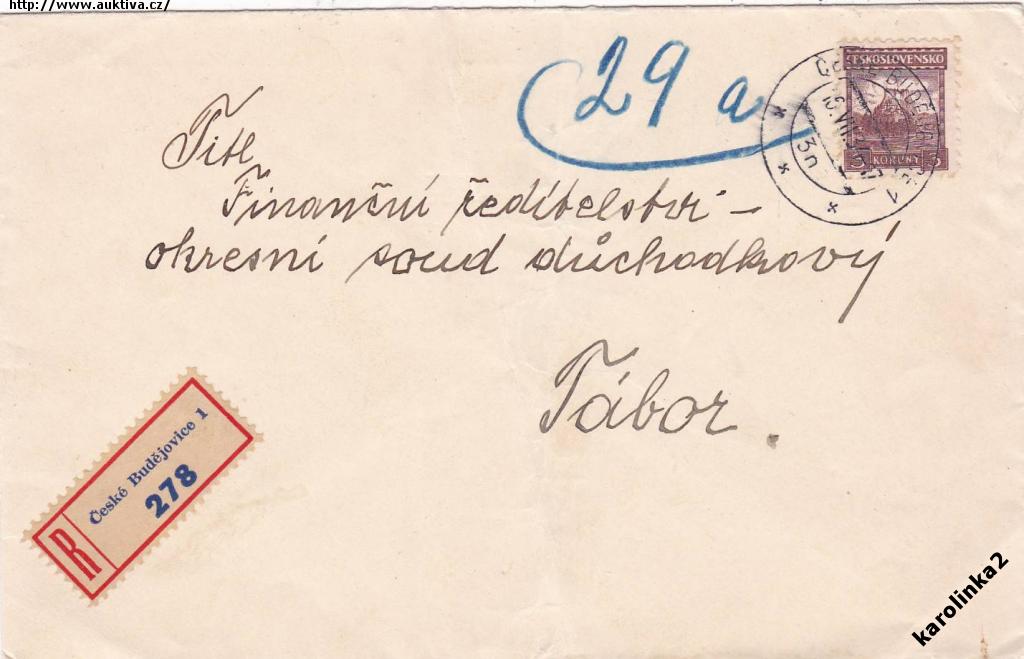 http://www.auktiva.cz/
29 a
ČESKOSLOVENSKO
3 KORUNY 3
ČESKÉ BUDĚJOVICE 1
3a
Titl
Finanční ředitelství –
okresní soud důchodkový
Tábor.
R České Budějovice 1
278
karolinka2